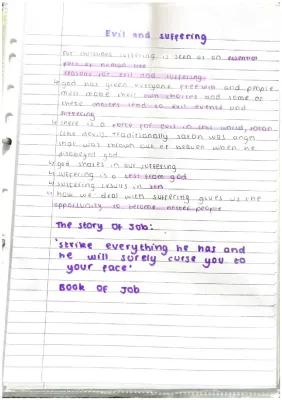 Evil and suffering
For christians suffering is seen as an essential
part of human life
reasons for evil and suffering
god has given everyone freewill and people
must make their own choices and some of
these choices lead to evil events and
suffering
there is a force for evil in this world, satan
(the devil). Traditionally satan was angel
that was thrown out of heaven when he
disobeyed god
god shares in our suffering
suffering is a test from god
suffering results in sin
how we deal with suffering gives us the
opportunity to become better people
The story of Job:
'strike everything he has and
he will surely curse you to
your face'
BOOK OF JOB